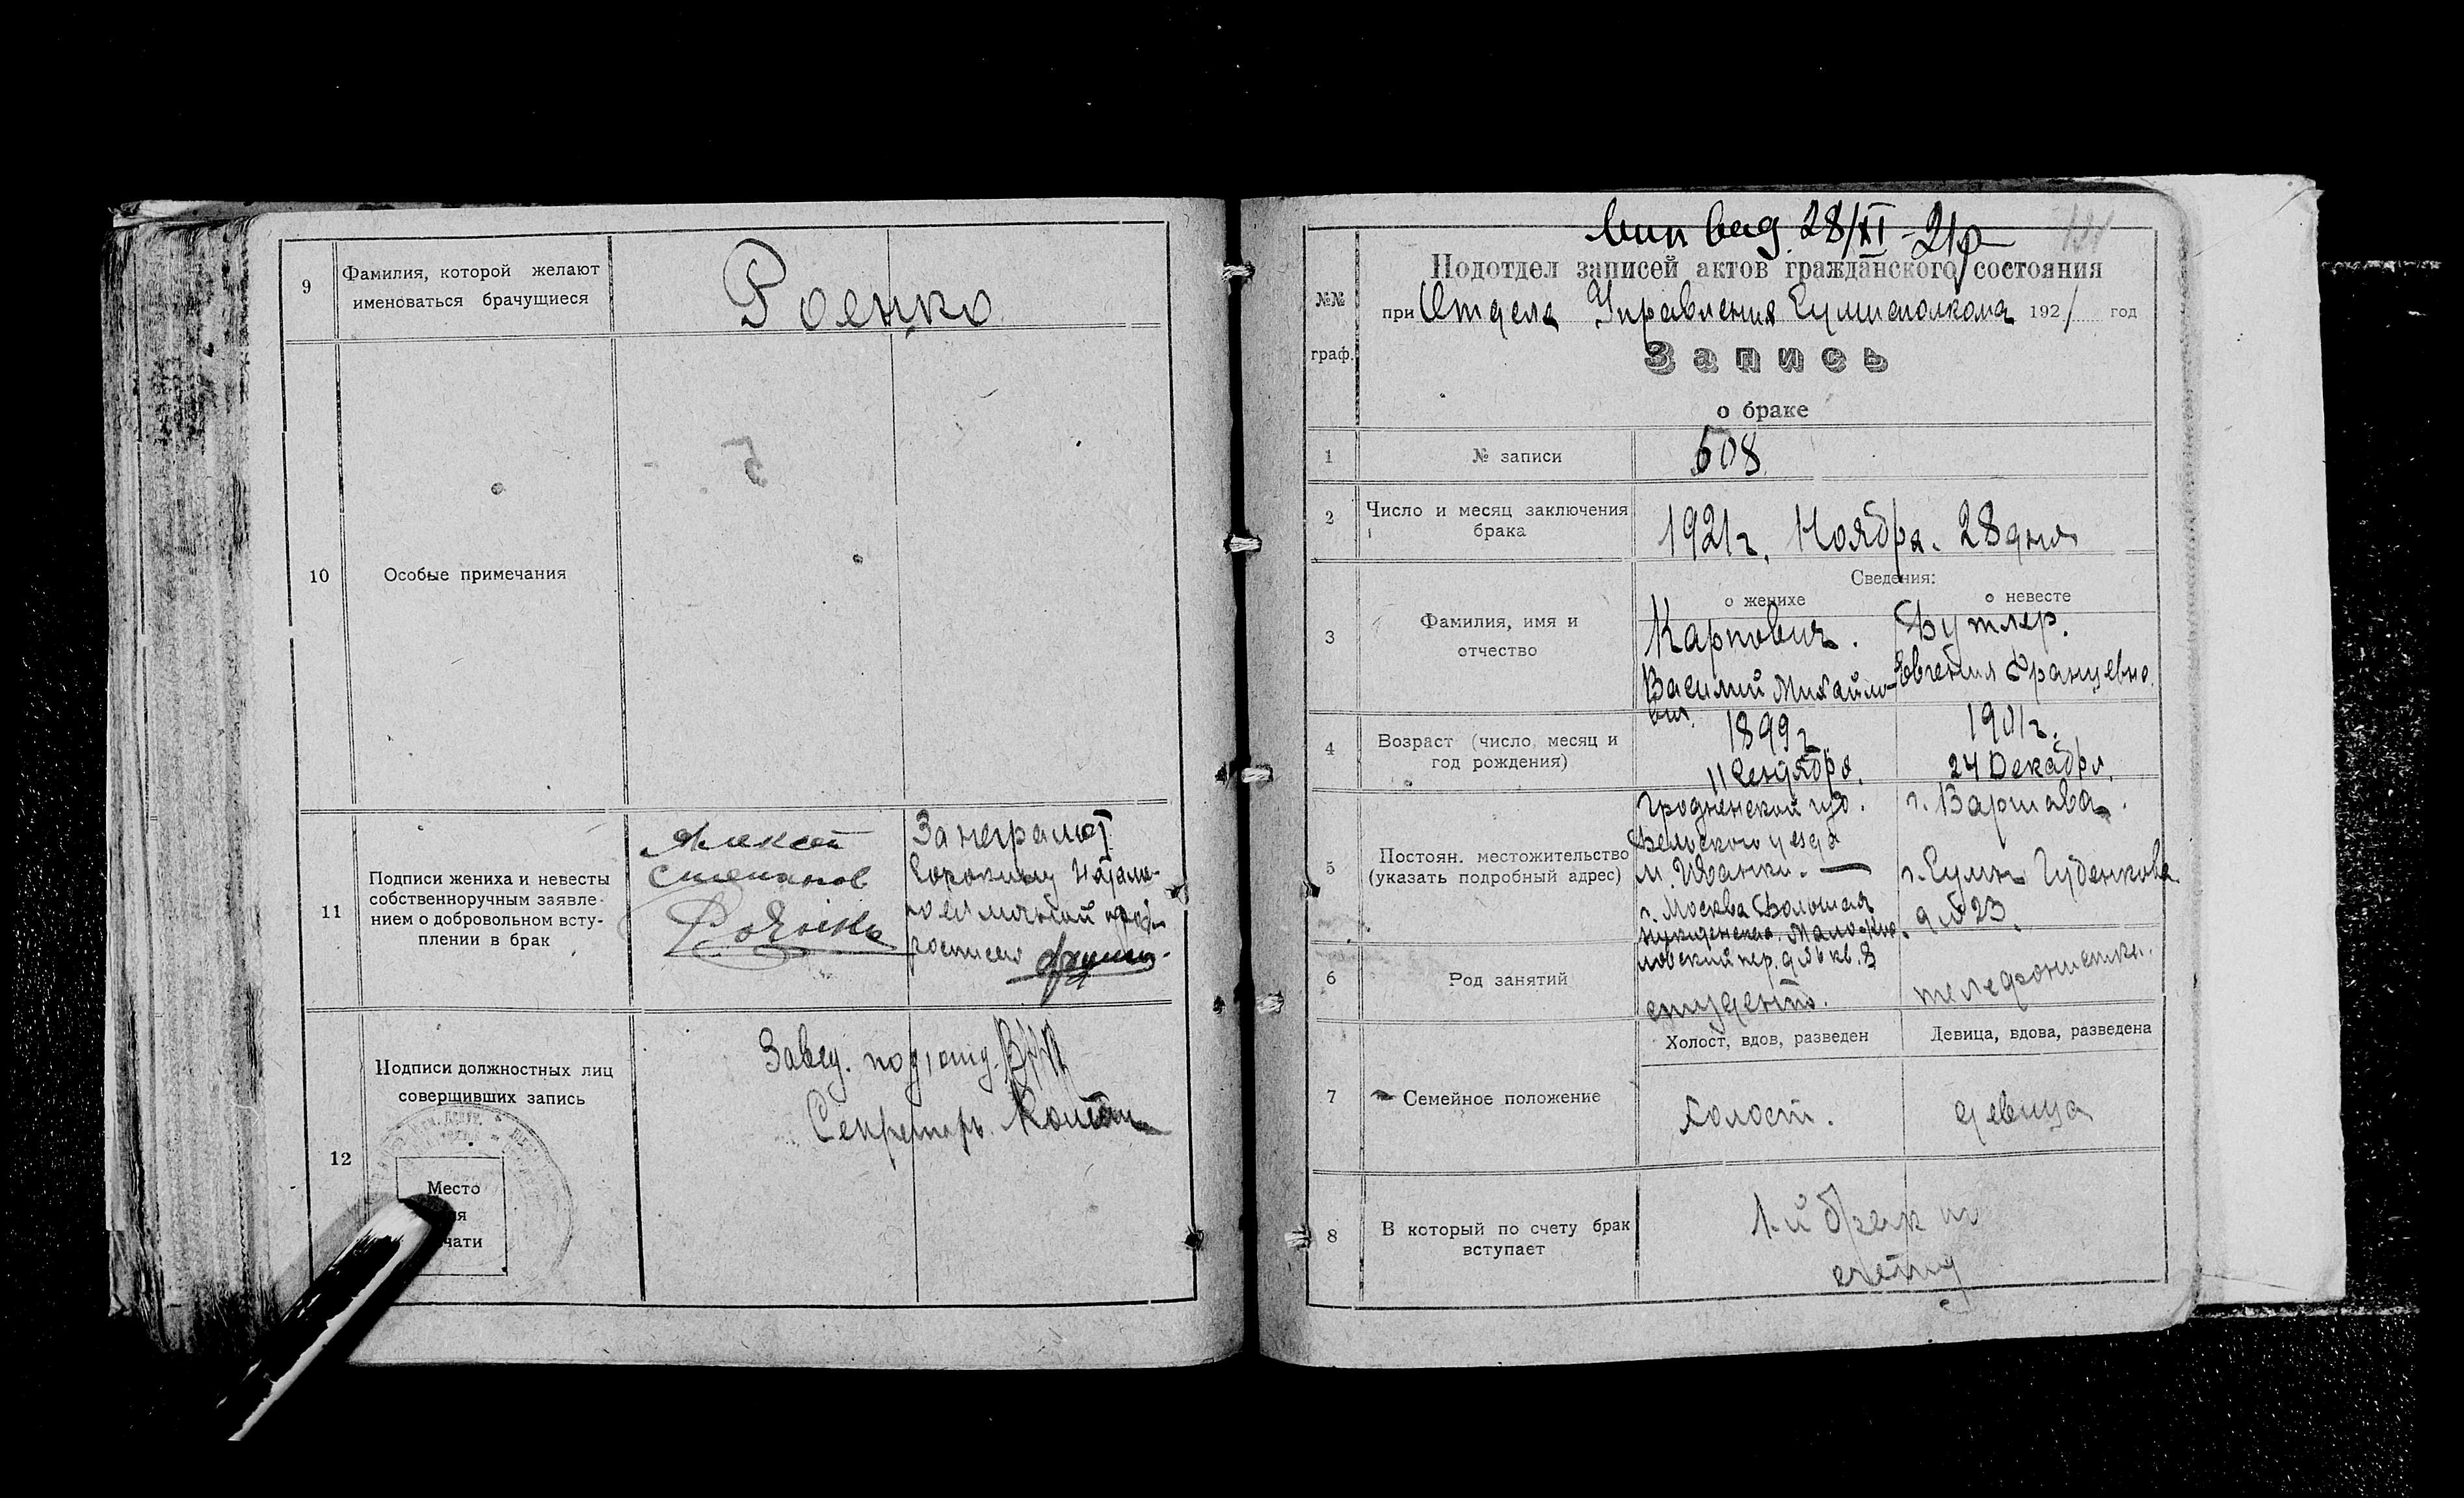 9
Фамилия, которой желают
именоваться брачущиеся
Роенко
10
Особые примечания
11
Подписи жениха и невесты
собственноручным заявле-
нием о добровольном всту-
плении в брак
Алексей
Степанов
За неграмот
Сорокину
12
Подписи должностных лиц
совершивших запись
Место
чати
Завед. под, отд.
Секретарь
28/XI -21
№№
граф.
Подотдел записей актов гражданского состояния
при Отдела Управления Сумисполкома 1921 год
Запись
о браке
1
№ записи
508
2
Число и месяц заключения
брака
1921 г. Ноября. 28 дня
Сведения:
о женихе
о невесте
3
Фамилия, имя и
отчество
Карпович.
Василий Михайло-
вич.
Бутлер.
Евгения Францевна.
4
Возраст (число, месяц и
год рождения)
1899 г.
11 Сентября.
1901 г.
24 Декабря.
5
Постоян. местожительство
(указать подробный адрес)
Гродненской губ.
Бельского уезда
м.
г. Москва Большая
пер. д. № 6 кв. 8
г. Варшава.
г. Сумы
д № 23.
6
Род занятий
студент.
телефонистка.
7
Семейное положение
Холост, вдов, разведен
Девица, вдова, разведена
холост.
девица
8
В который по счету брак
вступает
1-й брак по
счету